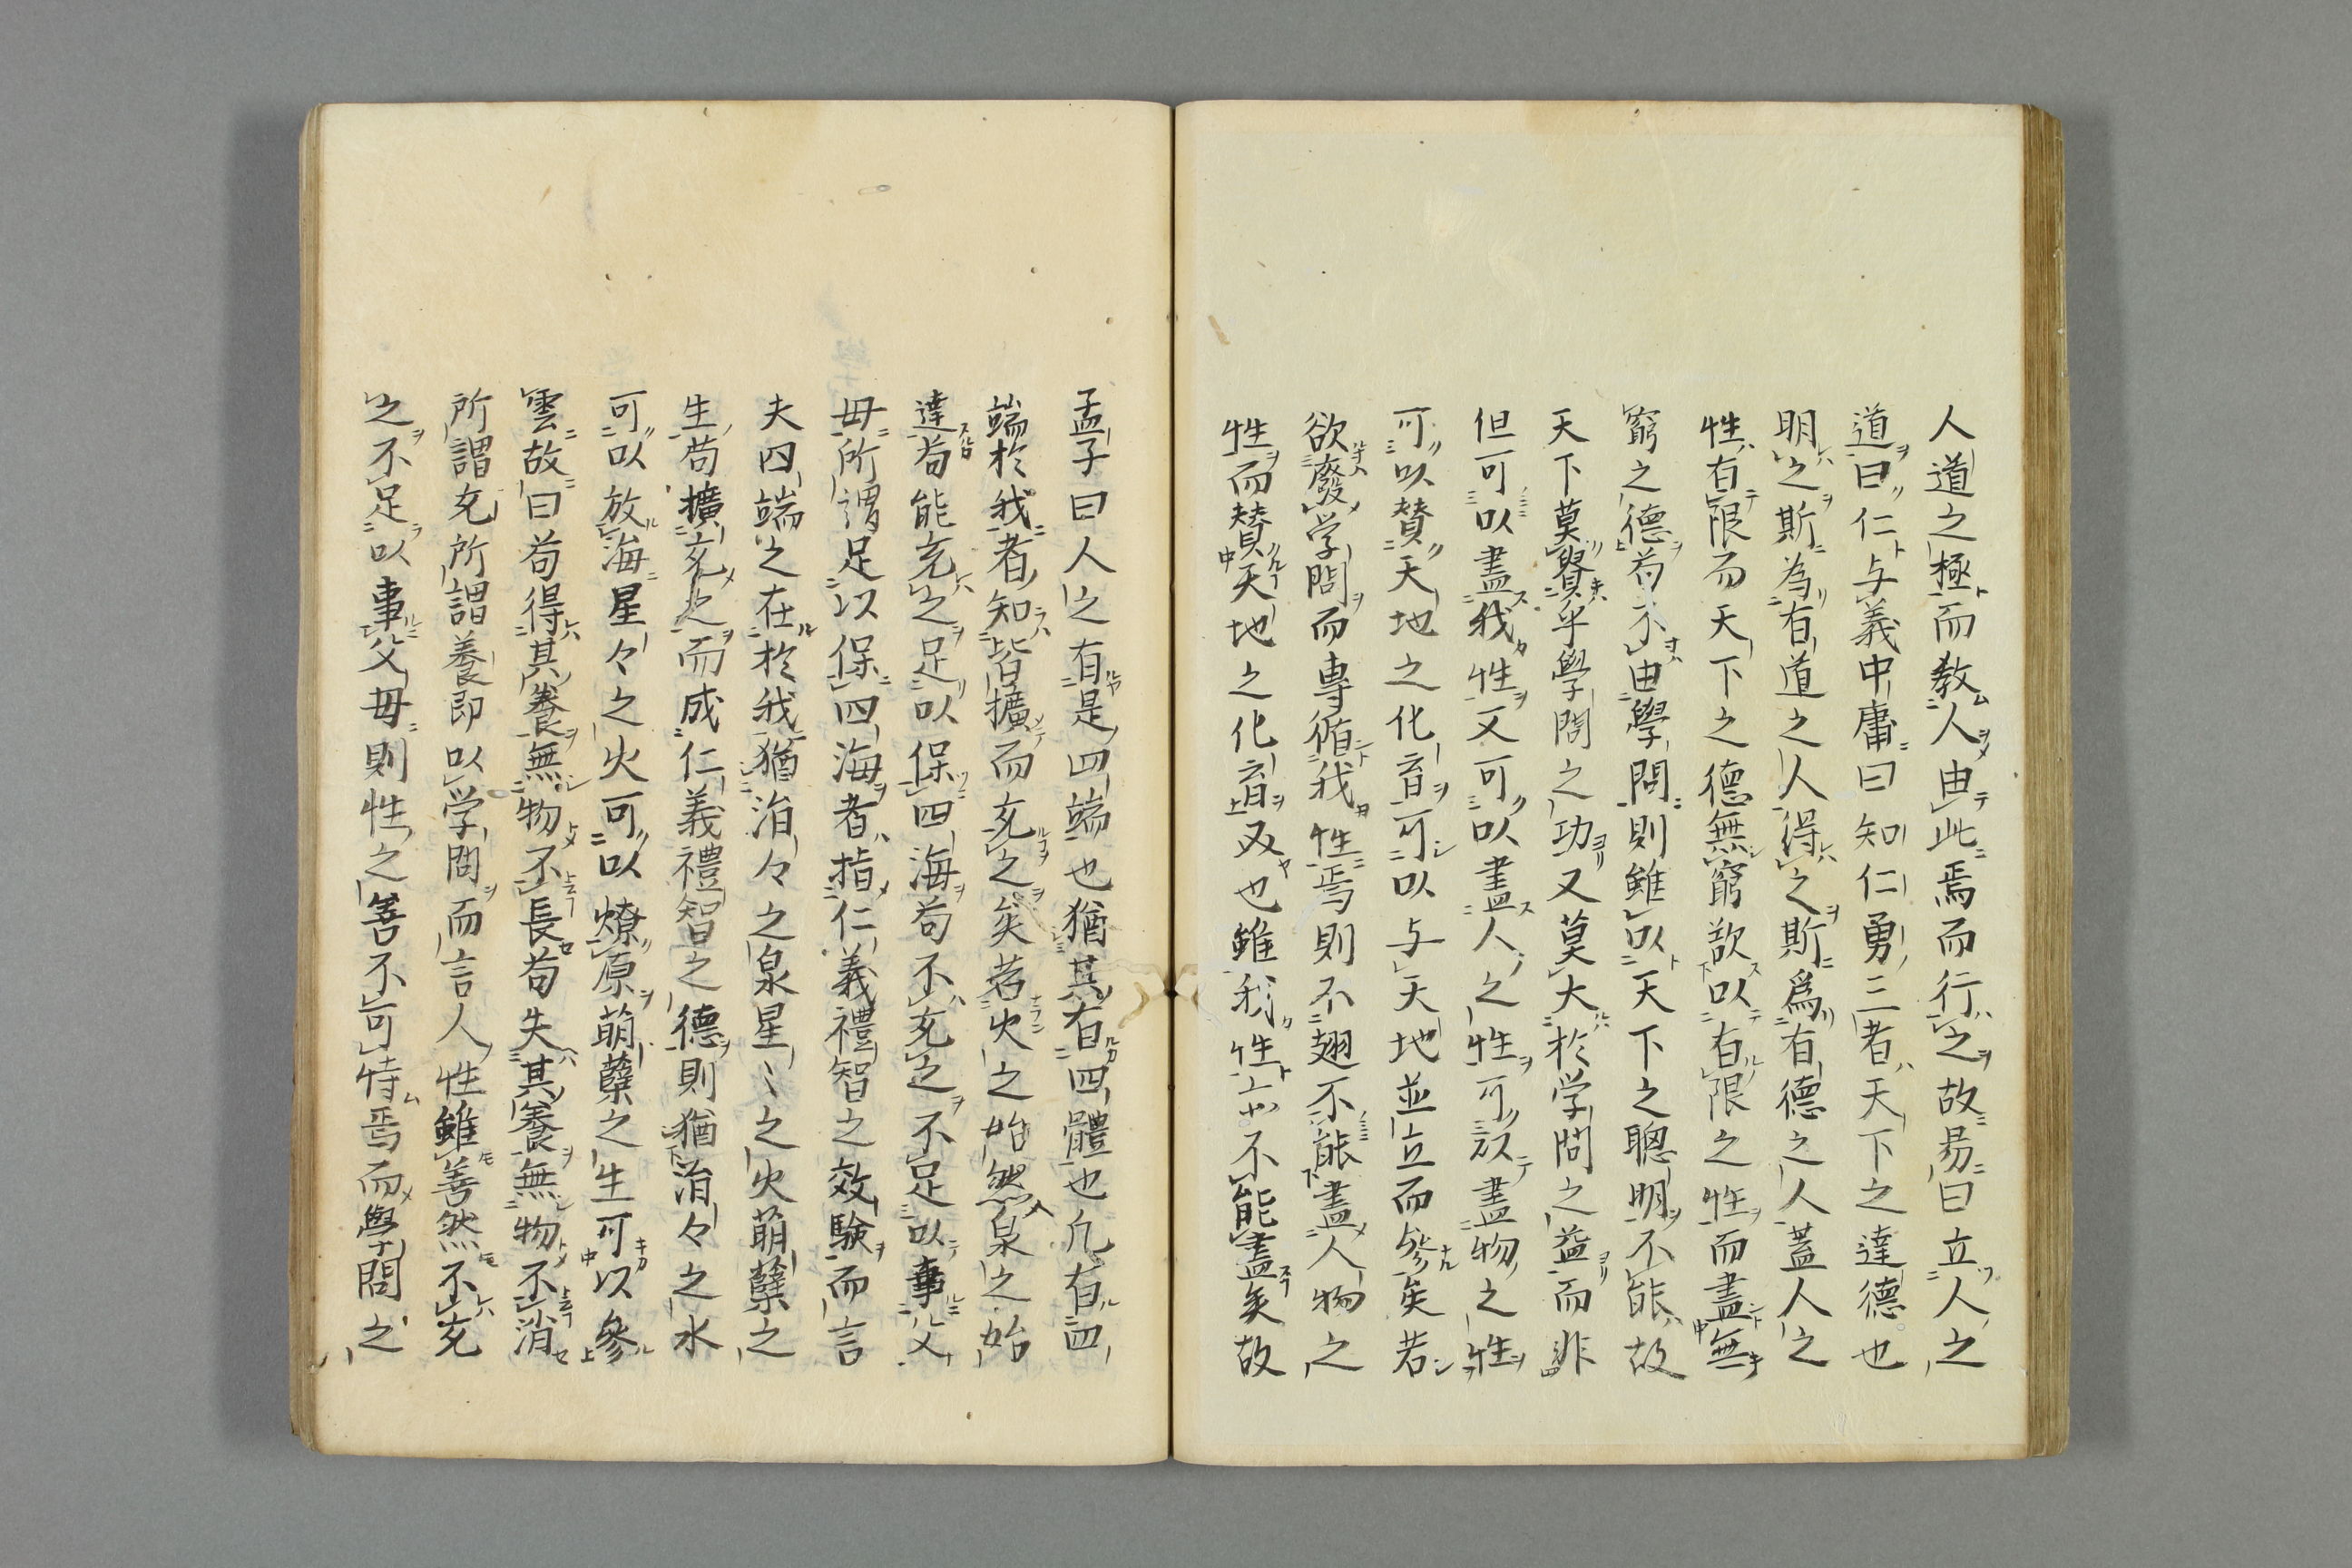 人道之極而教人由此焉而行之故易曰立人之
道曰仁与義中庸曰知仁勇三者天下之達德也
明之斯為有道之人得之斯爲有德之人蓋人之
性有限而天下之德無窮欲以有限之性而盡無
窮之德苟不由學問則雖以天下之聰明不能故
天下莫貴乎學問之功又莫大於学問之益而非
但可以盡我性又可以盡人之性可以盡物之性
可以賛天地之化育可以与天地並立而參矣若
欲廢学問而專循我性焉則不翅不能盡人物之
性而賛天地之化育又也雖我性亦不能盡矣故
孟子曰人之有是四端也猶其有四體也凡有四
端於我者知皆擴而充之矣若火之始然泉之始
達苟能充之足以保四海苟不充之不足以事父
母所謂足以保四海者指仁義禮智之效驗而言
夫四端之在於我猶涓々之泉星々之火萌蘖之
生苟擴充之而成仁義禮智之德則猶涓々之水
可以放海星々之火可以燎原萌蘖之生可以參
雲故曰苟得其養無物不長苟失其養無物不消
所謂充所謂養即以学問而言人性雖善然不充
之不足以事父母則性之善不可恃焉而學問之